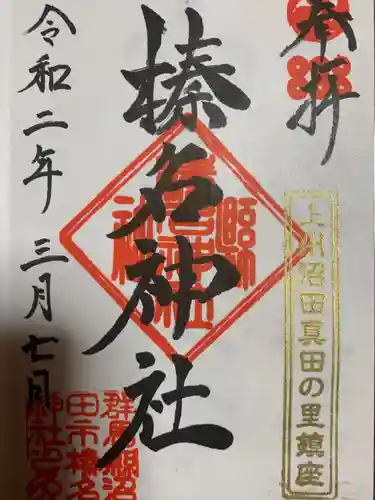 奉拝
上州沼田真田の里鎮座
榛名神社
令和二年三月七日
群馬縣沼
田市榛名